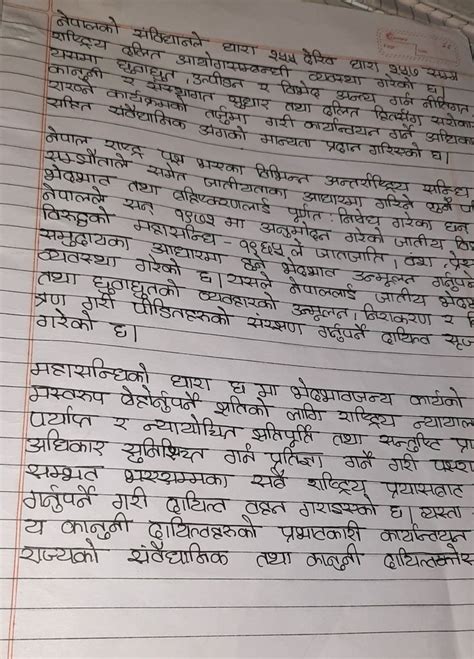 नेपालको संविधानले धारा २५५ देखि धारा २५७ सम्म
राष्ट्रिय दलित आयोगसम्बन्धी व्यवस्था गरेको छ।
यसमा छुवाछुत, उत्पीडन र विभेद अन्त्य गर्न नीतिगत,
कानूनी र संस्थागत सुधार तथा दलित हितसँग सरोकार
राख्ने कार्यक्रमको तर्जुमा गरी कार्यान्वयन गर्ने अधिकार
सहित संवैधानिक अंगको मान्यता प्रदान गरिएको छ।
नेपाल राष्ट्र पक्ष भएका विभिन्न अन्तर्राष्ट्रिय सन्धि
सम्झौताले समेत जातीयताका आधारमा गरिने कुनै
भेदभाव तथा बहिष्करणलाई पूर्णत: निषेध गरेका छन्
नेपालले सन् १९७१ मा अनुमोदन गरेको जातीय
विरुद्धको महासन्धि - १९६५ ले जातजाति, वंश,
समुदायका आधारमा हुने भेदभाव उन्मूलन गर्नुपर्ने
व्यवस्था गरेको छ। यसले नेपाललाई जातीय भेद
तथा छुवाछुतको व्यवहारको उन्मूलन, निराकरण र
त्रण गरी पीडितहरुको संरक्षण गर्नुपर्ने दायित्व सृज
गरेको छ।
महासन्धिको धारा ६ मा भेदभावजन्य कार्यको
मस्वरुप बेहोर्नुपर्ने क्षतिको लागि राष्ट्रिय न्यायाल
पर्याप्त र न्यायोचित क्षतिपूर्ति तथा सन्तुष्टि प्रा
अधिकार सुनिश्चित गर्न प्रतिज्ञा गर्ने गरी पक्षरा
सम्भव भएसम्मका सबै राष्ट्रिय प्रयासबाट
गर्नुपर्ने गरी दायित्व वहन गराइएको छ। यस्ता
य कानुनी दायित्वहरुको प्रभावकारी कार्यान्वयन
राज्यको संवैधानिक तथा कानूनी दायित्वभित्र